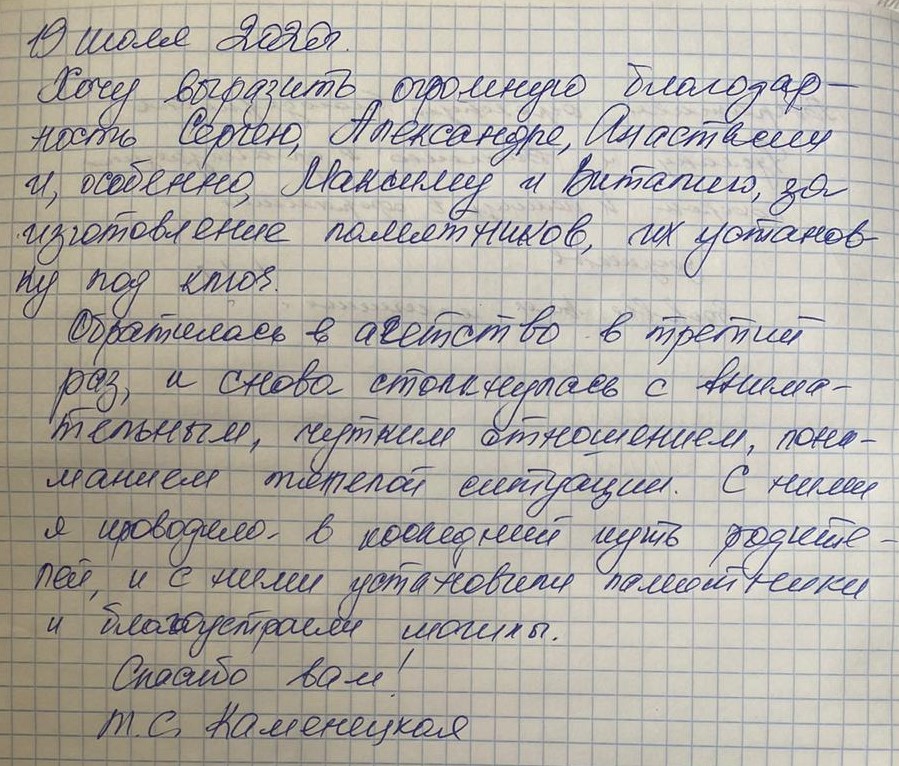 19 июля 2020г.
Хочу выразить огромную благодар-
ность Сергею, Александре, Анастасии
и, особенно, Максиму и Виталию, за
изготовление памятников, их установ-
ку под ключ.
Обратилась в агетство в третий
раз, и снова столкнулась с внима-
тельным, чутким отношением, пони-
манием тяжелой ситуации. С ними
я проводила в последний путь родите-
лей, и с ними установили памятники
и благоустроили могилы.
Спасибо вам!
Т.С. Каменецкая